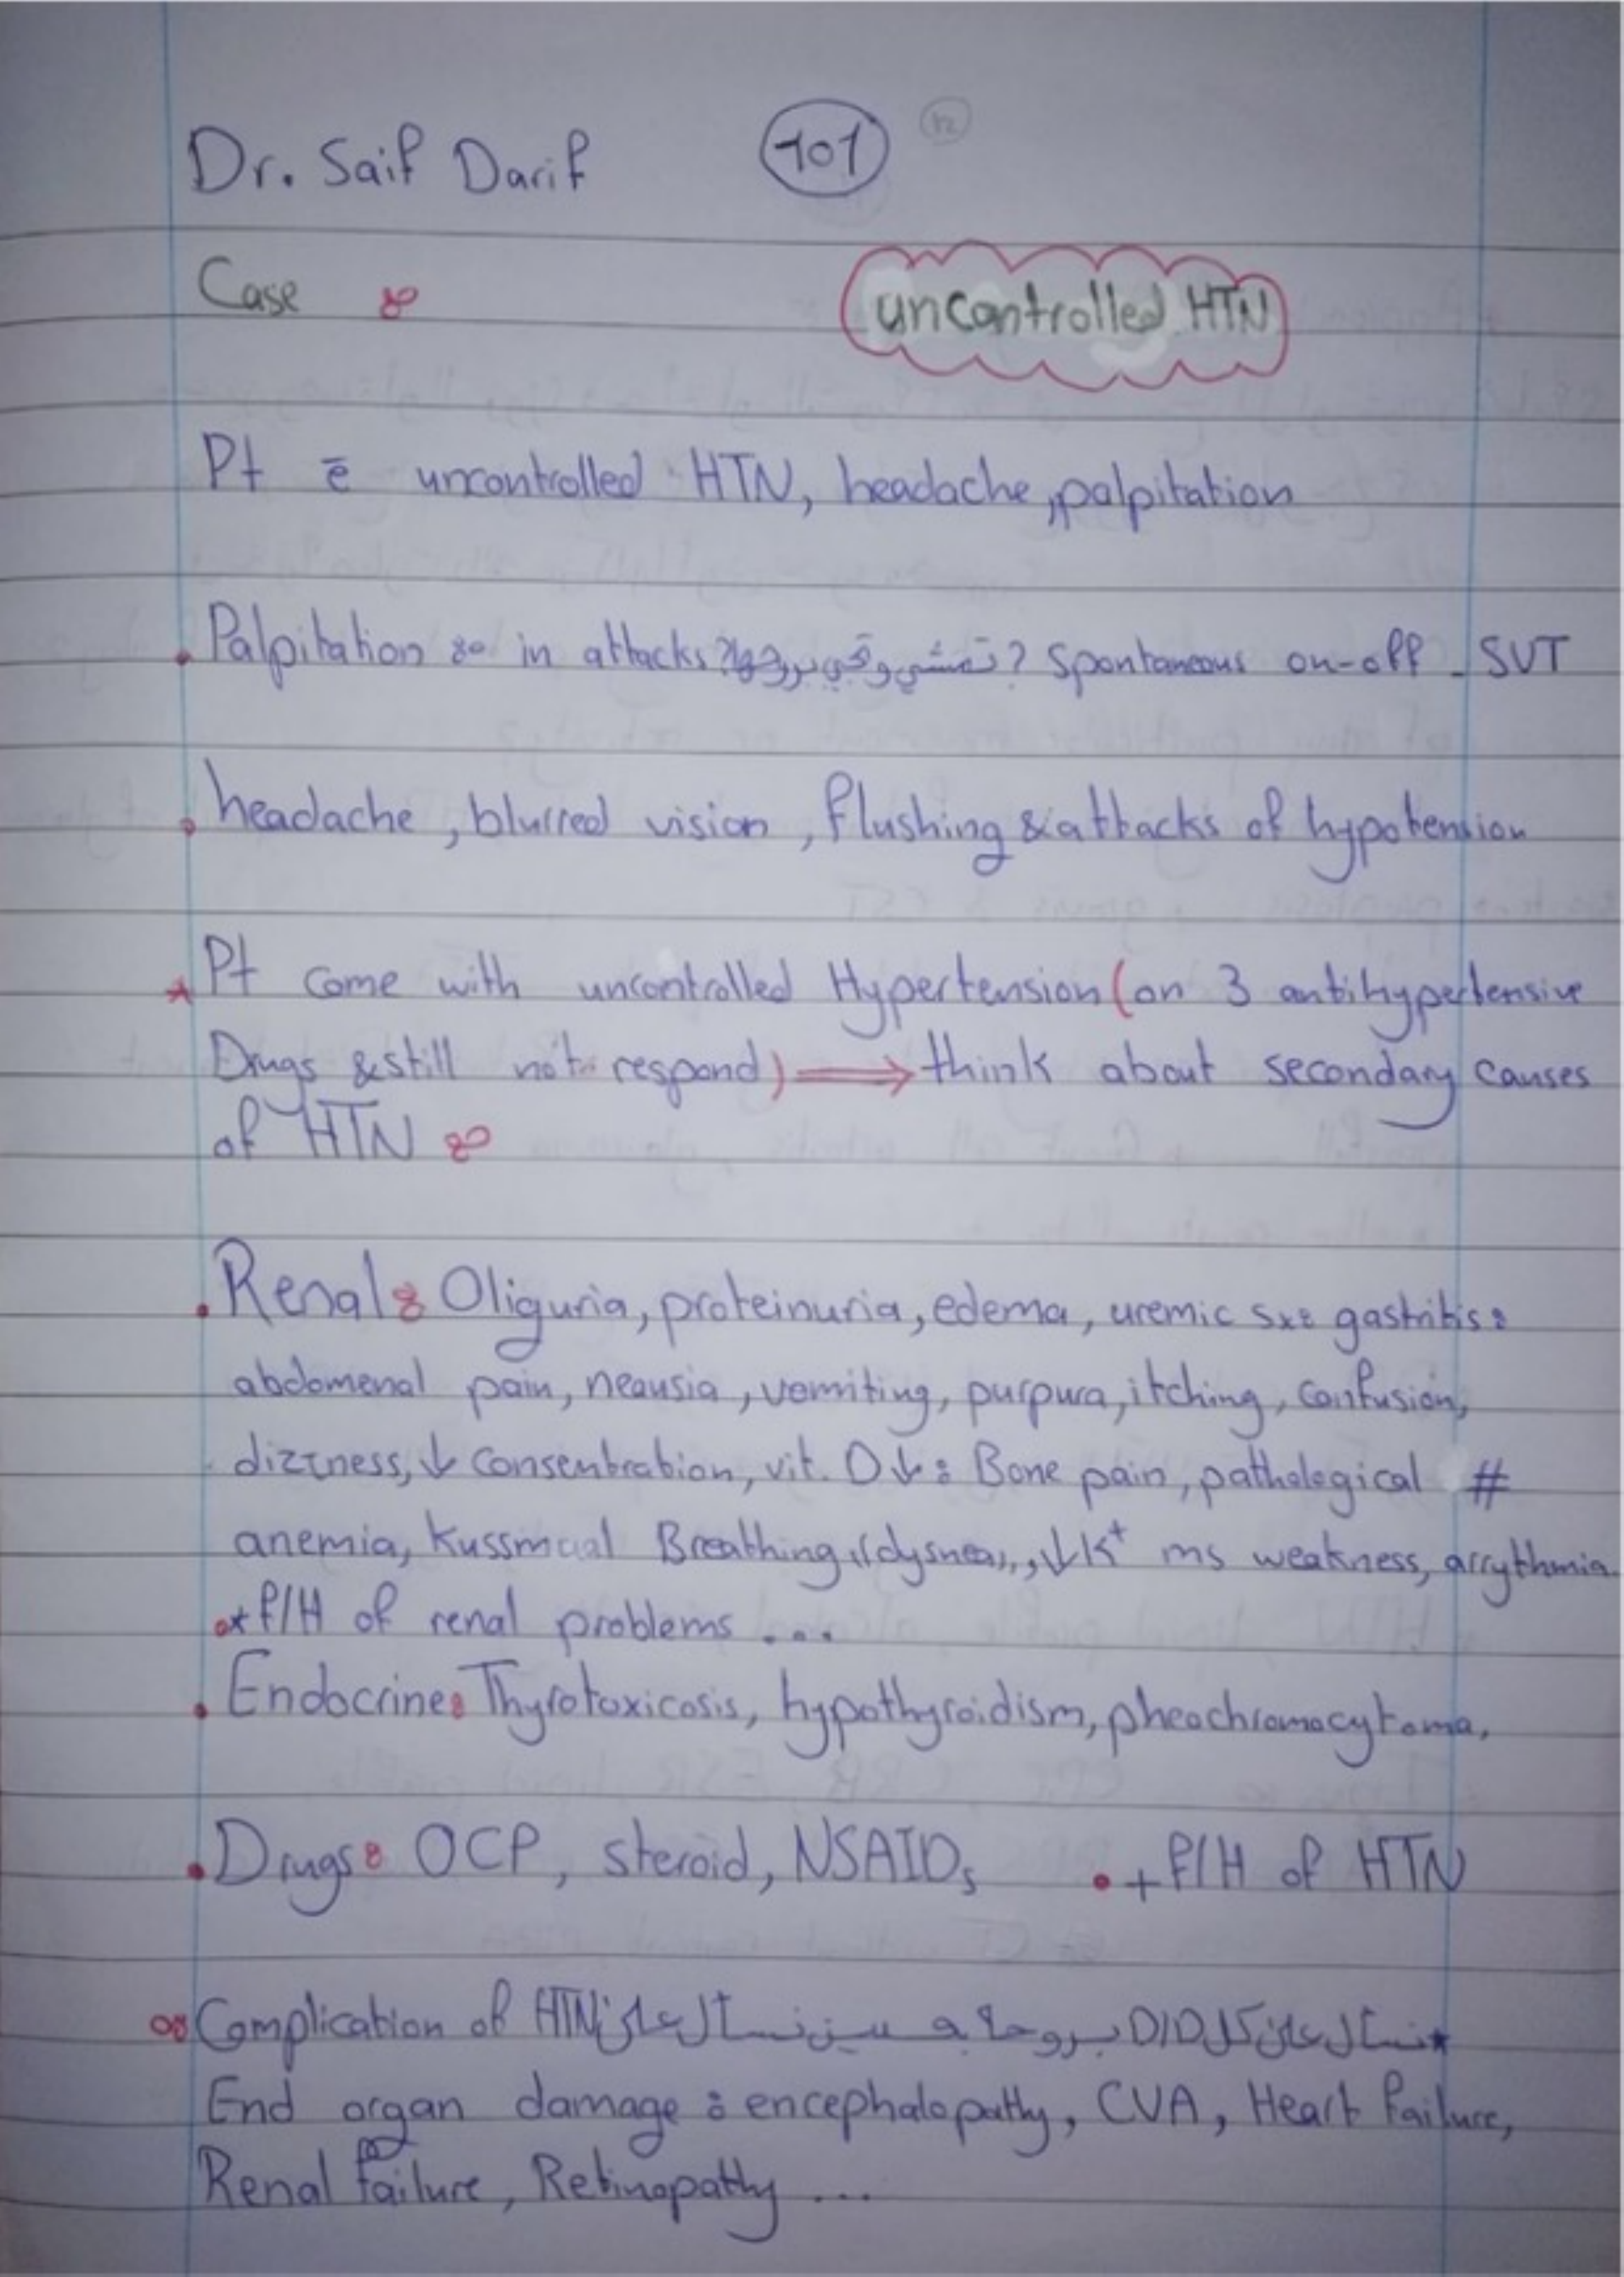 Dr. Saif Darif 101
Case :
uncontrolled HTN
Pt ē uncontrolled HTN, headache, palpitation
. Palpitation : in attacks? تمشي وتجي بروحها? Spontaneous on-off - SVT
. headache, blurred vision, flushing & attacks of hypotension
* Pt come with uncontrolled Hypertension (on 3 antihypertensive
Drugs & still not respond) ⟹ think about secondary causes
of HTN :
. Renal: Oliguria, proteinuria, edema, uremic sx: gastritis:
abdomenal pain, neausia, vomiting, purpura, itching, confusion,
dizzness, ↓ consentration, vit. D↓: Bone pain, pathological #
anemia, Kussmaal Breathing "dysnea", ↓K⁺ ms weakness, arrythmia.
* f/H of renal problems ...
. Endocrine: Thyrotoxicosis, hypothyroidism, pheochromocytoma,
. Drugs: OCP, steroid, NSAIDs . + f/H of HTN
Complication of HTN نسأل على كل D/D بروحة بعدين نسأل على *
End organ damage : encephalopathy, CVA, Heart failure,
Renal failure, Retinopathy ...